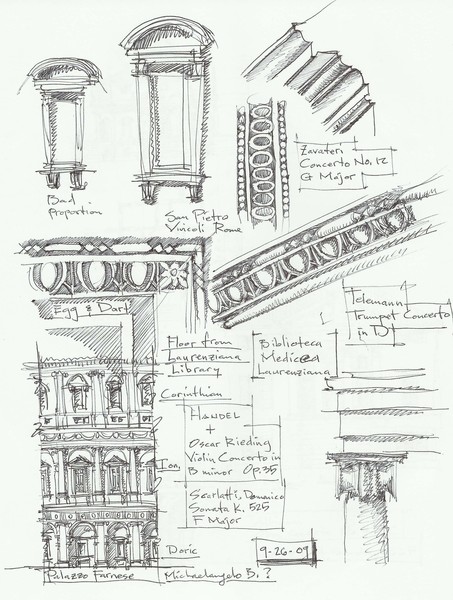 Zavateri
Concerto No. 12
G Major
Bad
Proportion
San Pietro
Vincoli Rome
Egg & Dart
Telemann
Trumpet Concerto
in D
Floor from
Laurenziana
Library
Biblioteca
Medicea
Laurenziana
Corinthian
HANDEL
+
Oscar Rieding
Violin Concerto in
B minor Op. 35
Ion.
Scarlatti, Domenico
Sonata K. 525
F Major
Doric
9-26-09
Palazzo Farnese
Michaelangelo B. ?